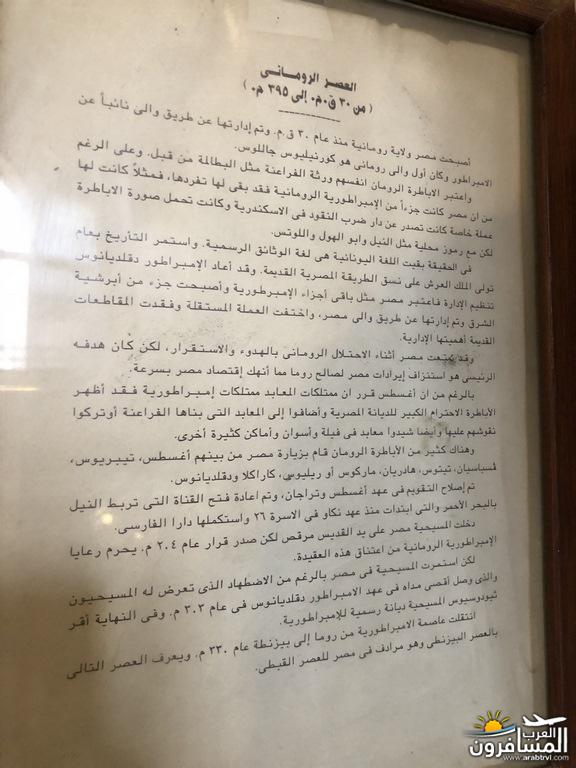 العصر الرومانى
( من ٣٠ ق.م. إلى ٣٩٥ م. )
أصبحت مصر ولاية رومانية منذ عام ٣٠ ق.م. وتم إدارتها عن طريق والى نائباً عن
الامبراطور وكان أول والى رومانى هو كورنيليوس جاللوس.
واعتبر الاباطرة الرومان انفسهم ورثة الفراعنة مثل البطالمة من قبل. وعلى الرغم
من ان مصر كانت جزءاً من الإمبراطورية الرومانية فقد بقى لها تفردها، فمثلاً كانت لها
عملة خاصة كانت تصدر عن دار ضرب النقود فى الاسكندرية وكانت تحمل صورة الاباطرة
لكن مع رموز محلية مثل النيل وابو الهول واللوتس.
فى الحقيقة بقيت اللغة اليونانية هى لغة الوثائق الرسمية. واستمر التأريخ بعام
تولى الملك العرش على نسق الطريقة المصرية القديمة. وقد أعاد الإمبراطور دقلديانوس
تنظيم الإدارة فاعتبر مصر مثل باقى أجزاء الإمبرطورية وأصبحت جزء من أبرشية
الشرق وتم إدارتها عن طريق والى مصر، واختفت العملة المستقلة وفقدت المقاطعات
القديمة أهميتها الإدارية.
وقد تمتعت مصر أثناء الاحتلال الرومانى بالهدوء والاستقرار، لكن كان هدفه
الرئيسى هو استنزاف إيرادات مصر لصالح روما مما أنهك إقتصاد مصر بسرعة.
بالرغم من ان أغسطس قرر ان ممتلكات المعابد ممتلكات إمبراطورية فقد أظهر
الأباطرة الاحترام الكبير للديانة المصرية وأضافوا إلى المعابد التى بناها الفراعنة أوتركوا
نقوشهم عليها وأيضا شيدوا معابد فى فيلة وأسوان وأماكن كثيرة أخرى.
وهناك كثير من الأباطرة الرومان قام بزيارة مصر من بينهم أغسطس، تيبريوس،
فسباسيان، تيتوس، هادريان، ماركوس أو ريليوس، كاراكلا ودقلديانوس.
تم إصلاح التقويم فى عهد أغسطس وتراجان، وتم اعادة فتح القناة التى تربط النيل
بالبحر الأحمر والتى ابتدات منذ عهد نكاو فى الاسرة ٢٦ واستكملها دارا الفارسى.
دخلت المسيحية مصر على يد القديس مرقص لكن صدر قرار عام ٢٠٤ م. يحرم رعايا
الإمبراطورية الرومانية من اعتناق هذه العقيدة.
لكن استمرت المسيحية فى مصر بالرغم من الاضطهاد الذى تعرض له المسيحيون
والذى وصل أقصى مداه فى عهد الامبراطور دقلديانوس فى عام ٣٠٣ م. وفى النهاية أقر
ثيودوسيوس المسيحية ديانة رسمية للإمبراطورية.
انتقلت عاصمة الامبراطورية من روما إلى بيزنطة عام ٣٣٠ م. ويعرف العصر التالى
بالعصر البيزنطى وهو مرادف فى مصر للعصر القبطى.
العرب
المسافرون
www.arabtrvl.com